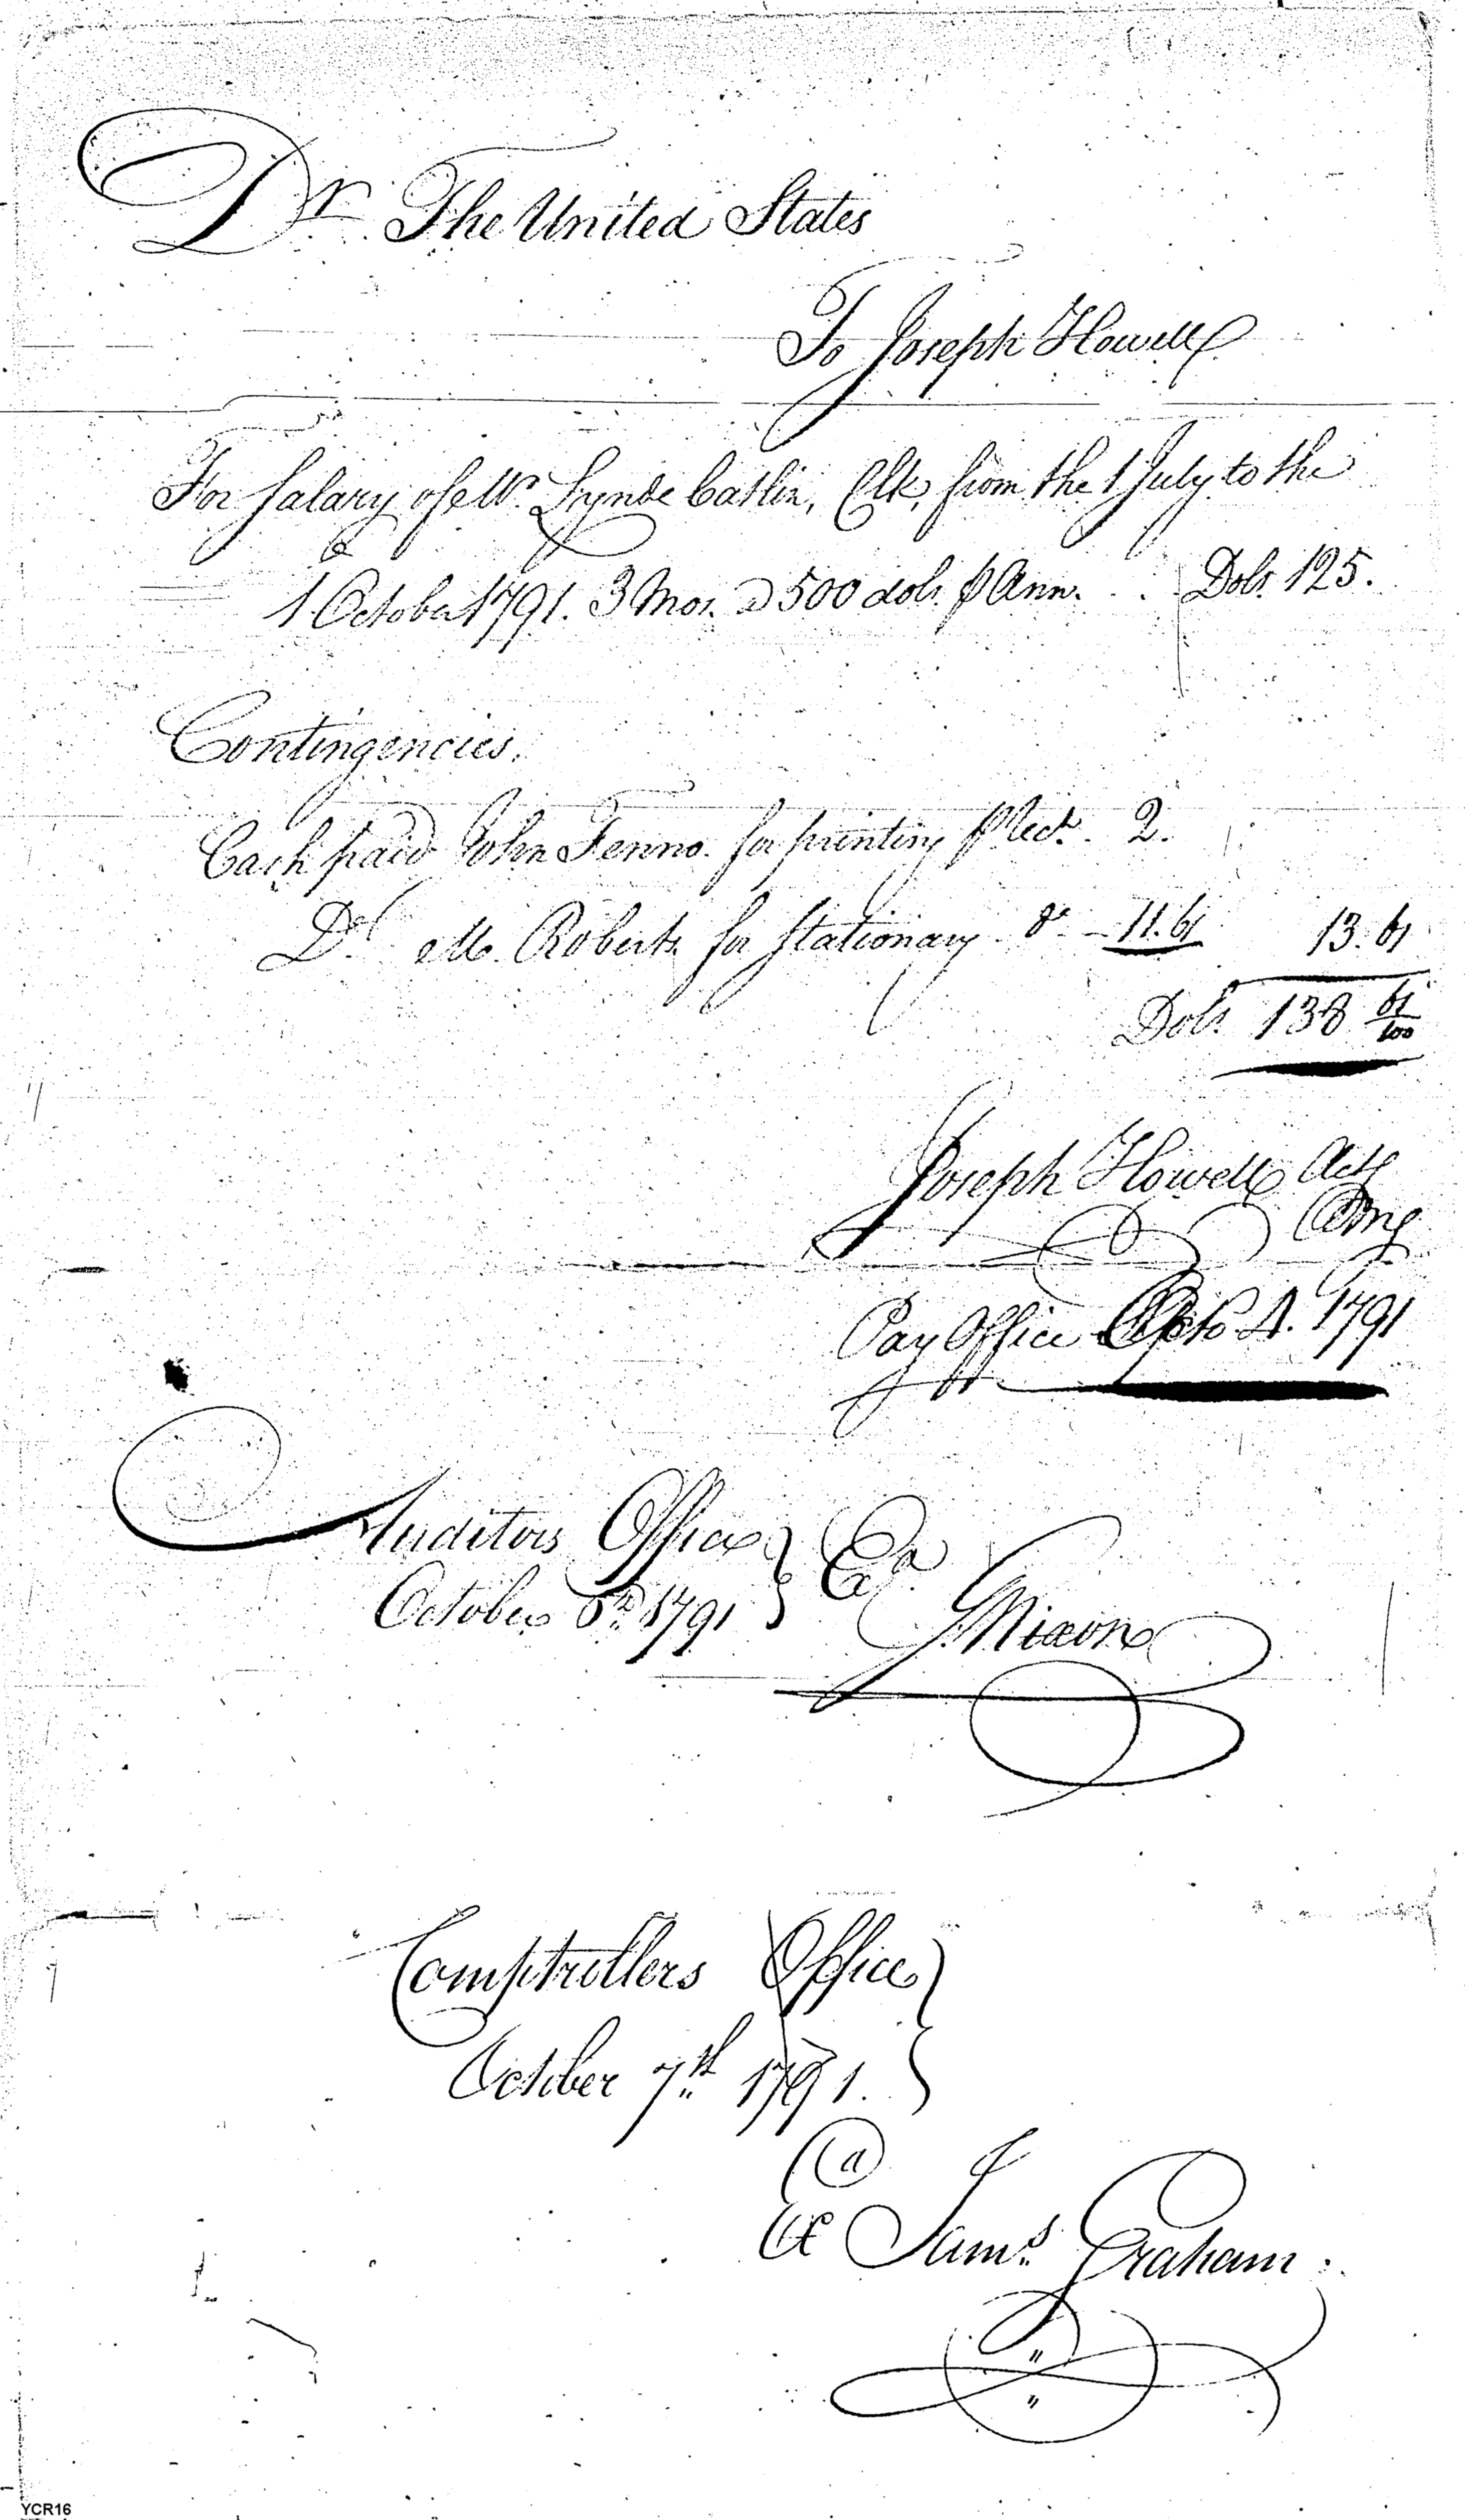 Dr The United States
To Joseph Howell
For Salary of Mr. Lynde Catlin, Clk, from the 1 July to the
1 October 1791. 3 Mos. @ 500 dols. ⅌ Ann. . . Dols. 125.
Contingencies.
Cash paid John Fenno. for printing ⅌ Rect. 2.
Do. M. Roberts for Stationary do — 11.61 13.61
Dols. 138 61/100
Joseph Howell Actg
Pay Office Octo 4. 1791
Auditors Office } Exd
October 1791 } Mixon
Comptrollers Office }
October 7th 1791. }
Ex Jams. Graham
YCR16